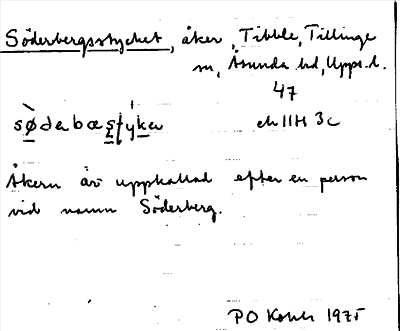 Söderbergsstycket, åker, Tibble, Tillinge
sn, Åsunda hd, Upps. l.
47
ek 11H 3c
Åkern är uppkallad efter en person
vid namn Söderberg.
PO 1975